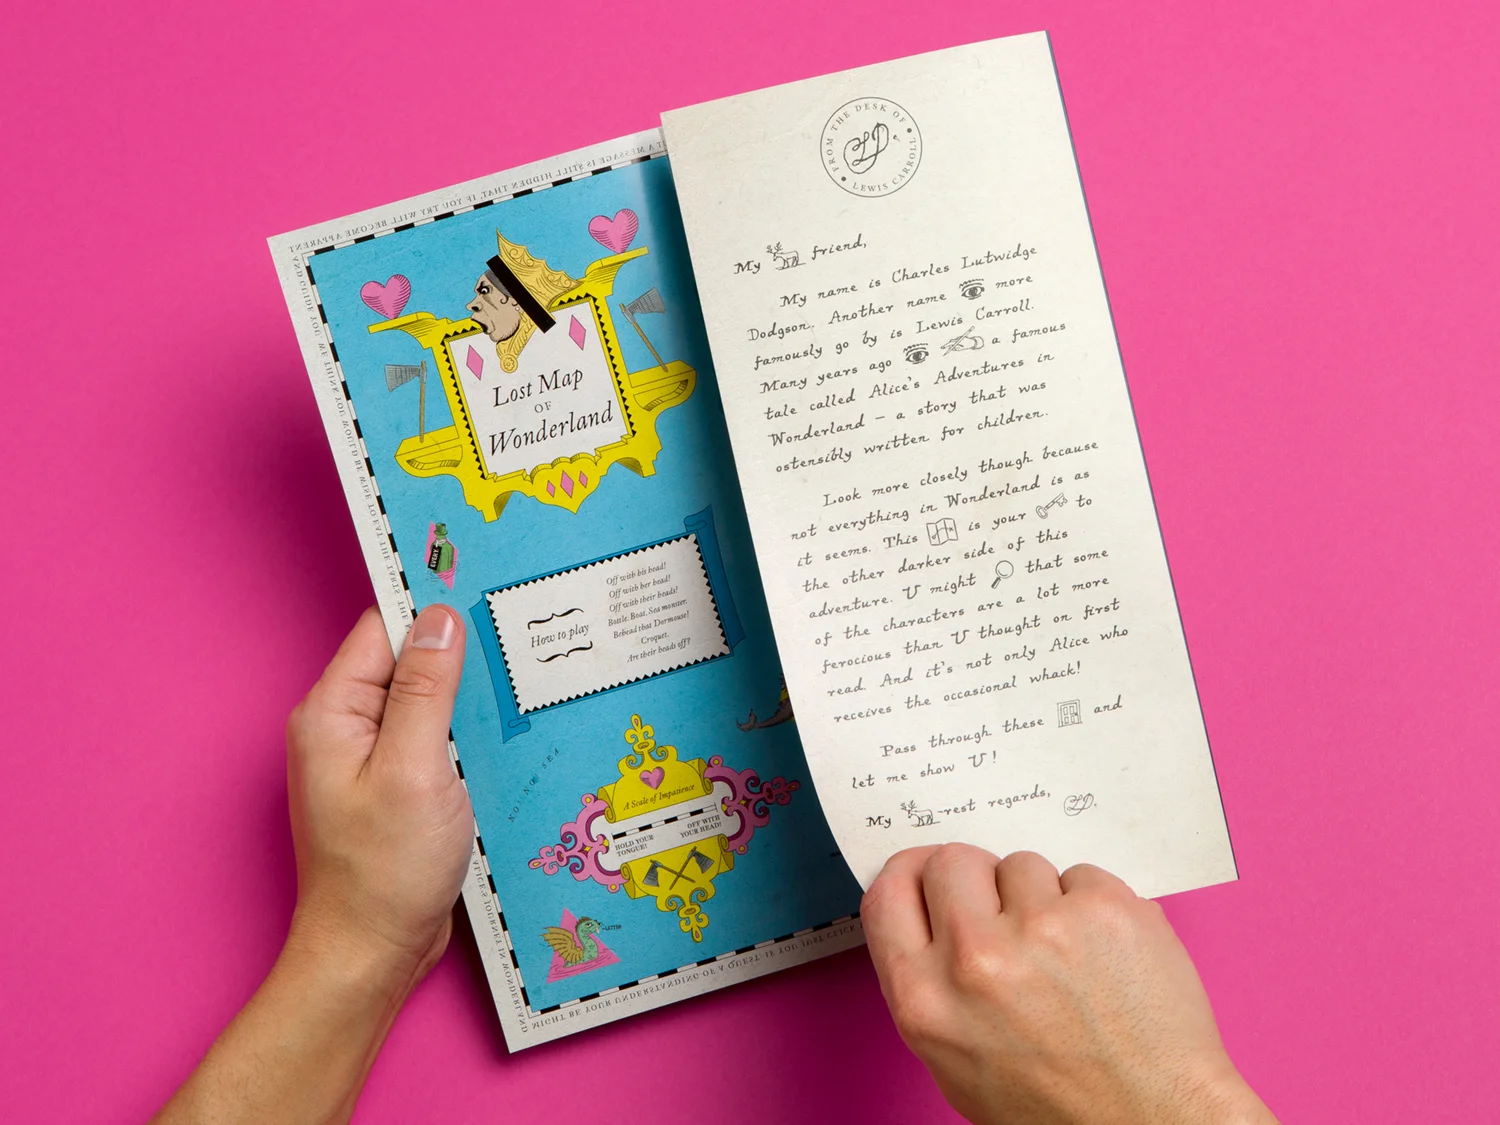 A MESSAGE IS STILL HIDDEN THAT, IF YOU TRY WILL BECOME APPARENT
Lost Map
OF
Wonderland
How to play
Off with his head!
Off with her head!
Off with their heads!
Bottle. Boat. Sea monster.
Behead that Dormouse!
Croquet.
Are their heads off?
NO-NO SEA
A Scale of Impatience
HOLD YOUR
TONGUE!
OFF WITH
YOUR HEAD!
ALICE'S JOURNEY IN WONDERLAND
MIGHT BE YOUR UNDERSTANDING OF A QUEST IF YOU JUST
FROM THE DESK OF
LEWIS CARROLL
My friend,
My name is Charles Lutwidge
Dodgson. Another name more
famously go by is Lewis Carroll.
Many years ago a famous
tale called Alice's Adventures in
Wonderland – a story that was
ostensibly written for children.
Look more closely though because
not everything in Wonderland is as
it seems. This is your to
the other darker side of this
adventure. U might that some
of the characters are a lot more
ferocious than U thought on first
read. And it's not only Alice who
receives the occasional whack!
Pass through these and
let me show U!
My -rest regards,